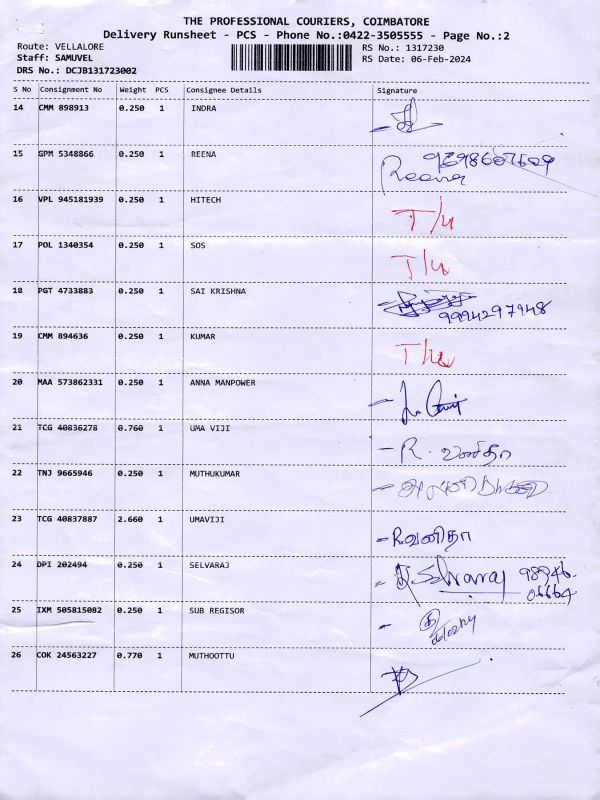 THE PROFESSIONAL COURIERS, COIMBATORE
Delivery Runsheet - PCS - Phone No.:0422-3505555 - Page No.:2
Route: VELLALORE RS No.: 1317230
Staff: SAMUVEL RS Date: 06-Feb-2024
DRS No.: DCJB131723002
S No Consignment No Weight PCS Consignee Details Signature
14 CMM 898913 0.250 1 INDRA
15 GPM 5348866 0.250 1 REENA
Reena
16 VPL 945181939 0.250 1 HITECH T/u
17 POL 1340354 0.250 1 SOS T/u
18 PGT 4733883 0.250 1 SAI KRISHNA
9994297948
19 CMM 894636 0.250 1 KUMAR T/u
20 MAA 573862331 0.250 1 ANNA MANPOWER
21 TCG 40836278 0.760 1 UMA VIJI - R. வனிதா
22 TNJ 9665946 0.250 1 MUTHUKUMAR
23 TCG 40837887 2.660 1 UMAVIJI - R.வனிதா
24 DPI 202494 0.250 1 SELVARAJ Selvaraj 98946
06664
25 IXM 505815082 0.250 1 SUB REGISOR
26 COK 24563227 0.770 1 MUTHOOTTU